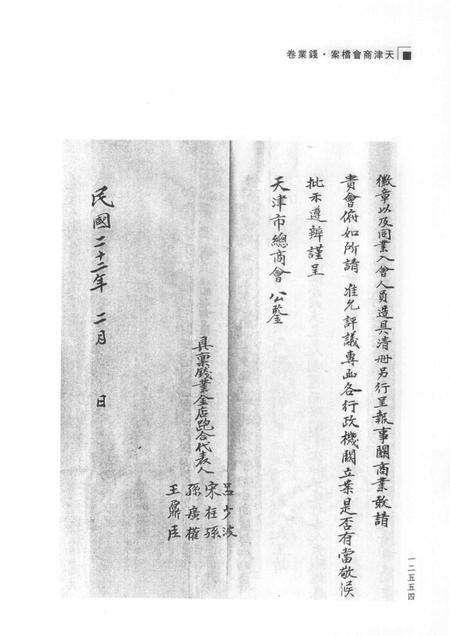 天津商會檔案·錢業卷
徽章以及同業入會人員造具清冊另行呈報事關商業敬請
貴會俯如所請准允評議專函各行政機關立業是否有當敬候
批示遵辦謹呈
天津市總商會公鑒
具稟錢業金店跑合代表人
呂少波
宋柱孫
孫廣權
王鼎臣
民國二十二年二月 日
一二五五四